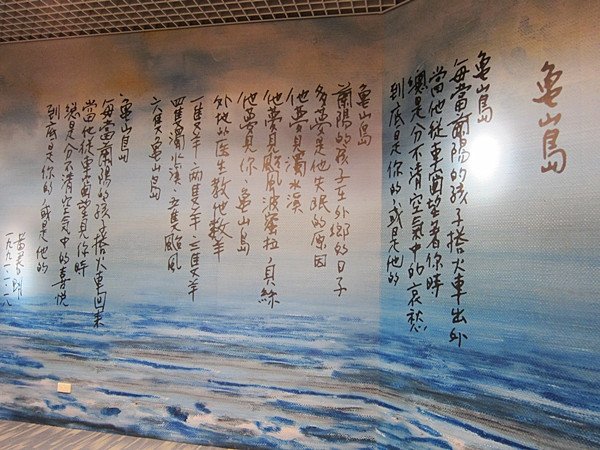 龜山島
龜山島
每當蘭陽的孩子搭火車出外
當他從車窗望著你時
總是分不清空氣中的哀愁
到底是你的、或是他的
龜山島
蘭陽的孩子在外鄉的日子
多夢是他失眠的原因
他夢見濁水溪
他夢見颱風波蜜拉、貝絲
他夢見你 龜山島
外地的医生教他數羊
一隻羊、兩隻羊、三隻羊
四隻濁水溪、五隻颱風
六隻龜山島
龜山島
每當蘭陽的孩子搭火車回來
當他從車窗望見你時
總是分不清空氣中的喜悅
到底是你的、或是他的
黃春明